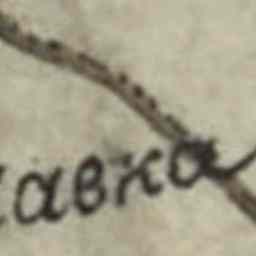 авка